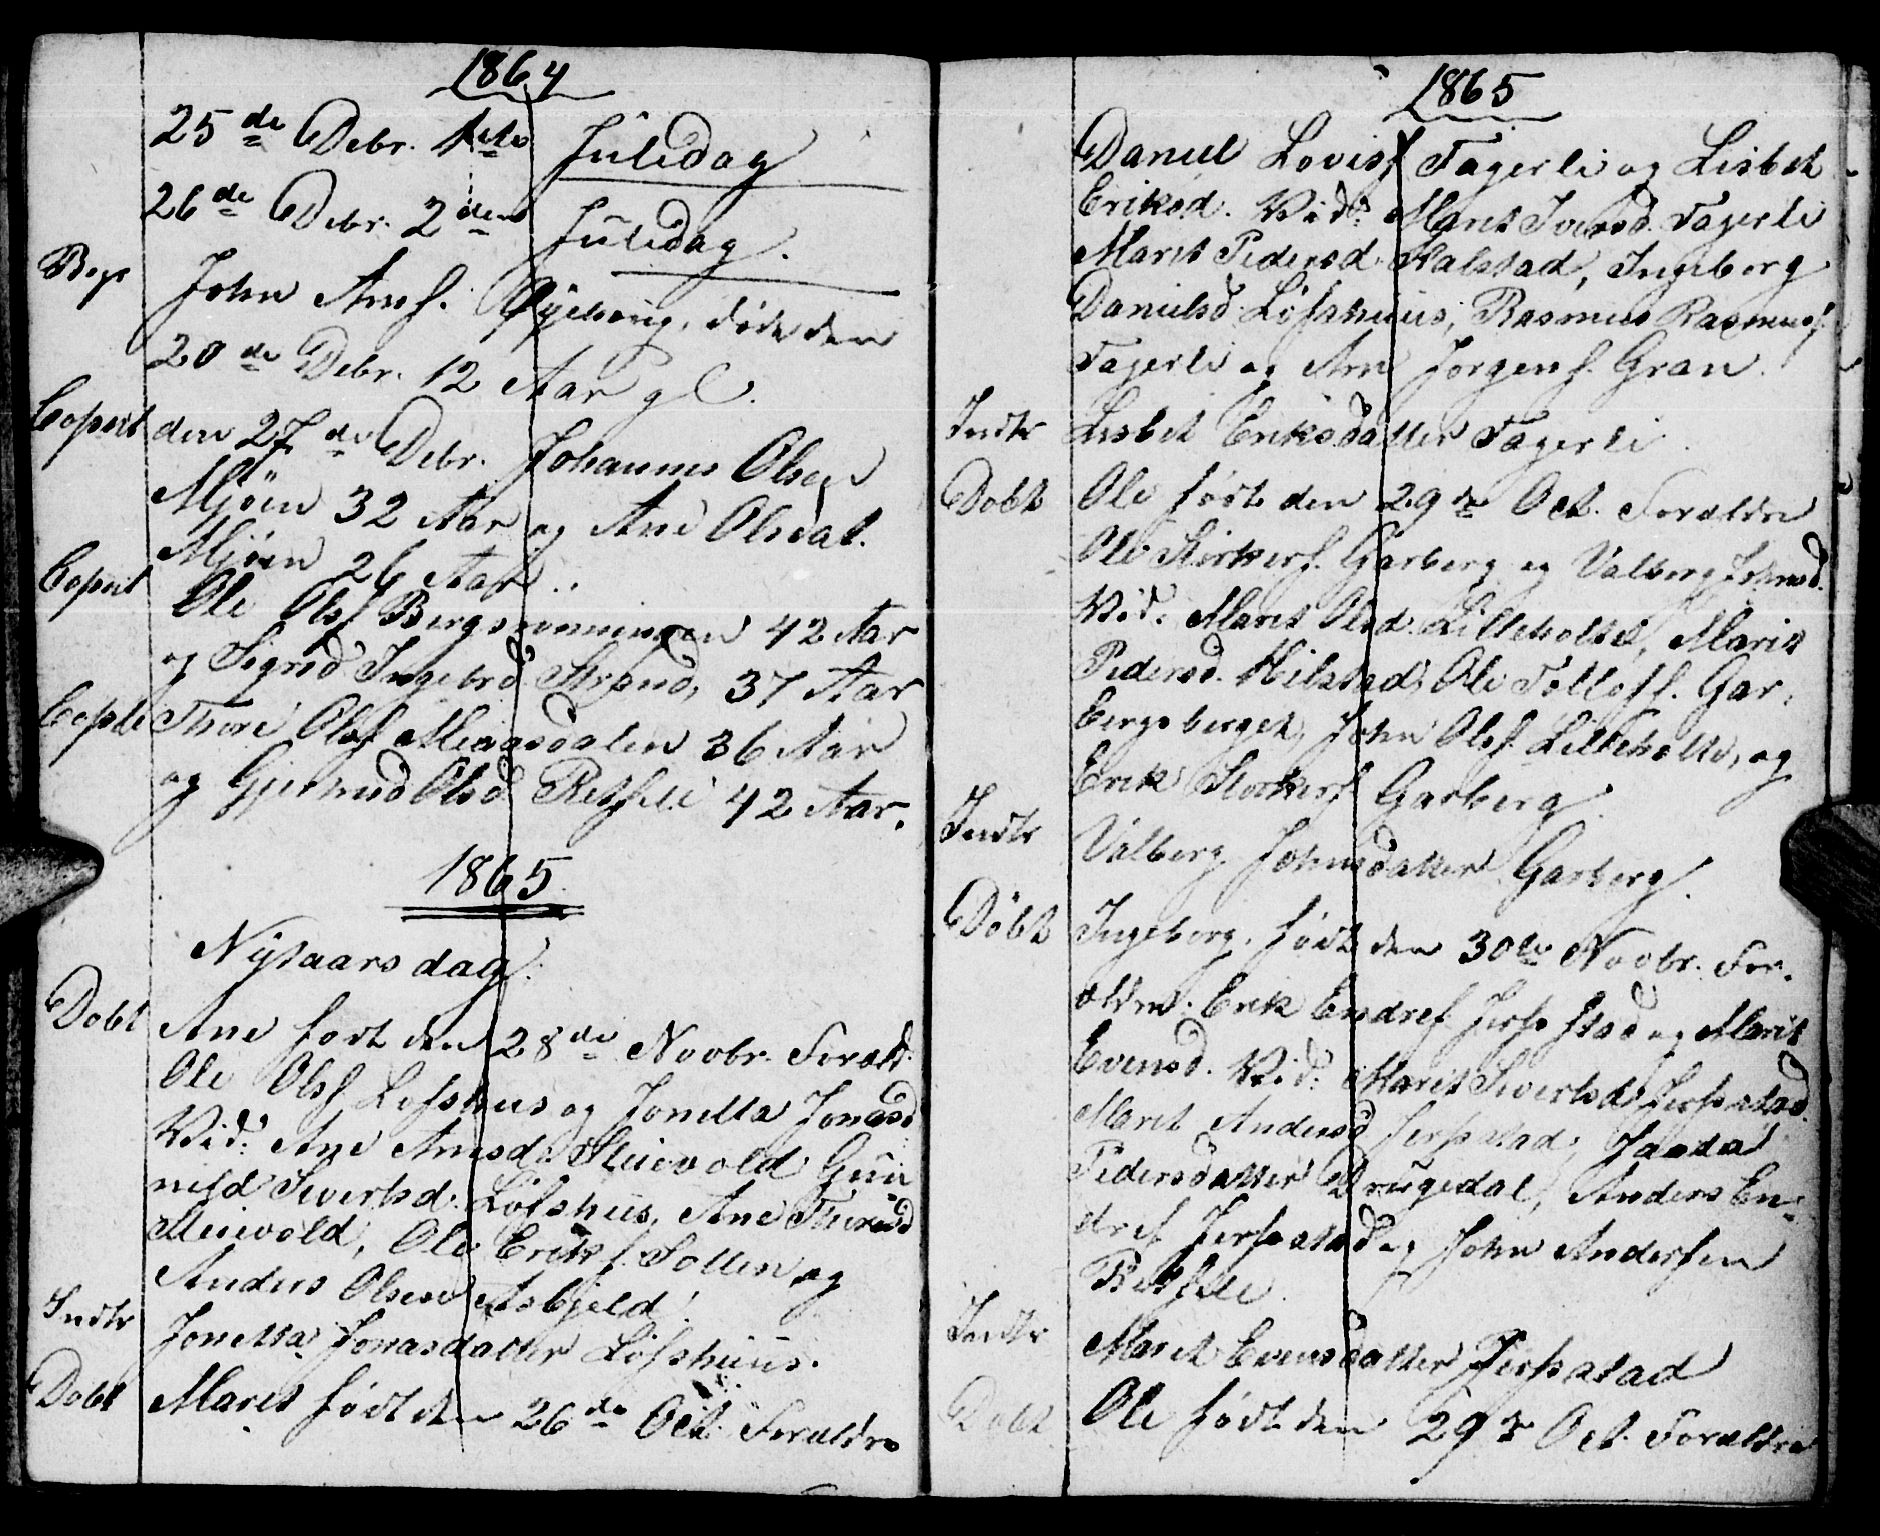 1864
25de Debr. 1ste Juledag
26de Debr. 2den Juledag.
Begr John Arns. Øÿeberg, døde den
20de Debr. 12 Aar gl.
Copul den 27de Debr. Johannes Olsen
Mjöen 32 Aar og Ane Olsdat.
Mjöen 26 Aar.
Copul Ole Olss Bergsrönningen 42 Aar
og Sigrid Ingebrd Strand, 37 Aar
Copl Thore Olss Meiaasdalen 36 Aar
og Gjertrud Olsd Retsfeli 42 Aar.
1865
Nÿtaarsdag.
Dobt Ane født den 28de Novbr. Foræld.
Ole Olss Lofshus og Jonetta Jonasd
Vid: Ane Arnsd. Skeievold Gun
nild Sivertsd. Löfshus, Ane Thoresd
Skeievold, Ole Eriks. Sollien og
Anders Olsen Asbjeld.
Indtr Jonetta Jonasdatter Löfshuus.
Dobt Marit født den 26de Oct Forældre
1865
Daniel Loviss Fagerli og Lisbet
Eriksd. Vid: Marit Iversd. Fagerli
Marit Pedersd. Kalstad, Ingeborg
Danielsd Löfshuus, Rasmus Rasmuss.
Fagerli og Arn Jörgens. Gran.
Indtr Lisbet Eriksdatter Fagerli.
Dobt Ole født den 29de Oct. Forældre
Ole Störkers. Garberg og Valberg Johnsd.
Vid. Marit Olsd. Lilleholte, Marit
Pedersd. Hilstad, Ole Tollofs. Gar-
bergsberget, John Olss. Lilleholte, og
Erik Störkers Garberg.
Indtr Valberg Johnsdatter Garberg.
Döbt Ingeborg, født den 30te Novbr. For-
ældre. Erik Endres. Jerpstad og Marit
Evensd. Vid: Marit Sivertsd. Jerpstad
Marit Andersd Jerpstad,
Pedersdatter Drugedal, Anders En-
dres Jerpstad og John Andersen
Retsfeli.
Indtr Marit Evensdatter Jerpstad
Dobt Ole født den 29de Oct. Forældre